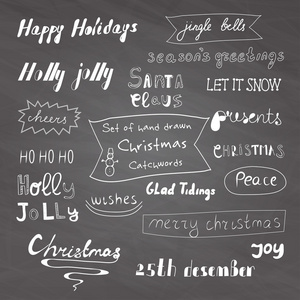 Happy Holidays
jingle bells
season's greetings
Holly jolly
SANTA
CLAUS
LET IT SNOW
cheers
Set of hand drawn
Christmas
Catchwords
Presents
HO HO HO
CHRISTMAS
Holly
JoLLy
wishes
GLad Tidings
Peace
merry christmas
Christmas
JOY
25th desember